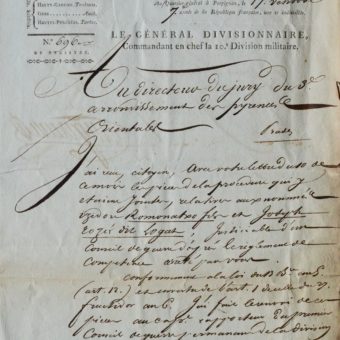 HAUTE-GARONNE, Toulouse.
GERS, Auch.
HAUTES-PYRÉNÉES, Tarbes.
Au Quartier-général à Perpignan, le 17 Ventose
année de la République française, une et indivisible.
N.° 696
DU REGISTRE.
LE GÉNÉRAL DIVISIONNAIRE,
Commandant en chef la 10.e Division militaire,
Au directeur du jury du 3e
arrondissement des pyrenées
Orientales
Prades
J'ai reçu, citoyen, avec votre lettre du 10 de
ce mois les pieces de la procedure qui y
etaient jointes, relatives aux nommés
Romonatxo fils et Joseph
dit Logat, justiciables d'un
Conseil de guerre d'après le reglement de
Competence par vous.
Conformement à la loi du
(art. 12.) et ensuite de l'art. 1 de celle du 27
fructidor an 6. J'ai fait le renvoi de ces
pieces au cap.ne rapporteur du premier
Conseil de guerre permanent de la Division